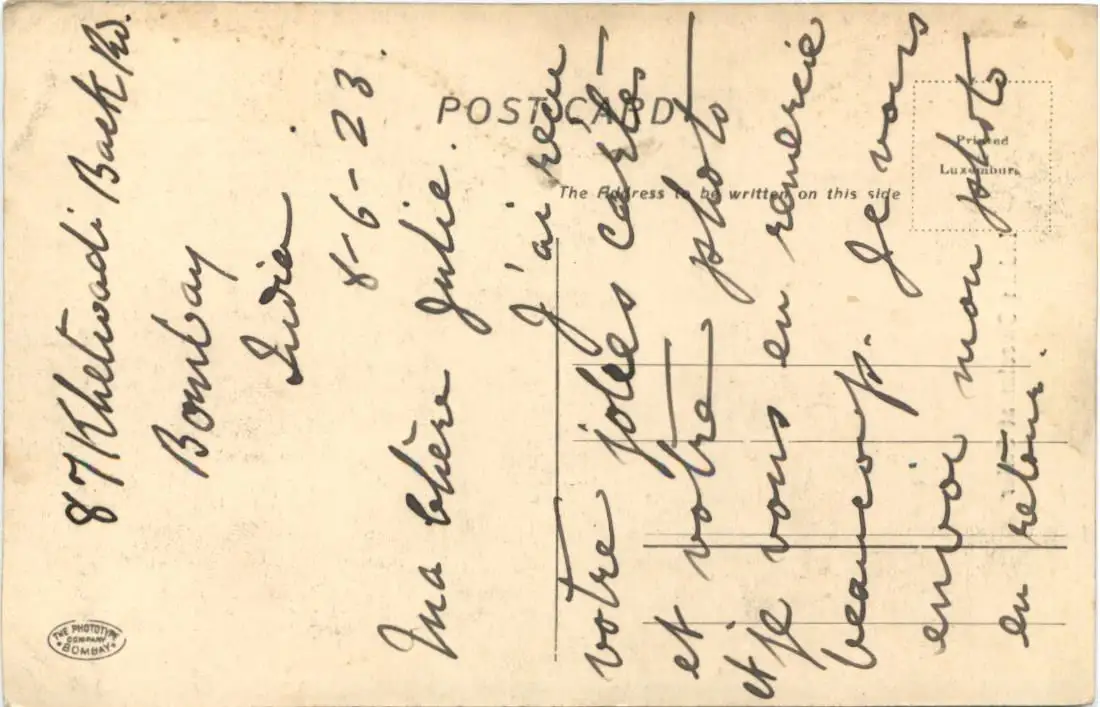 87 Khetwadi Back Rd.
Bombay
India
8-6-23.
Ma chère Julie.
J'ai recu
votre jolies cartes -
et votre photo
et je vous en remercie
beaucoup. Je vous
envoi mon photo
en retour.
POST CARD
The Address to be written on this side
Printed
Luxemburg
THE PHOTOTYPE
COMPANY
BOMBAY